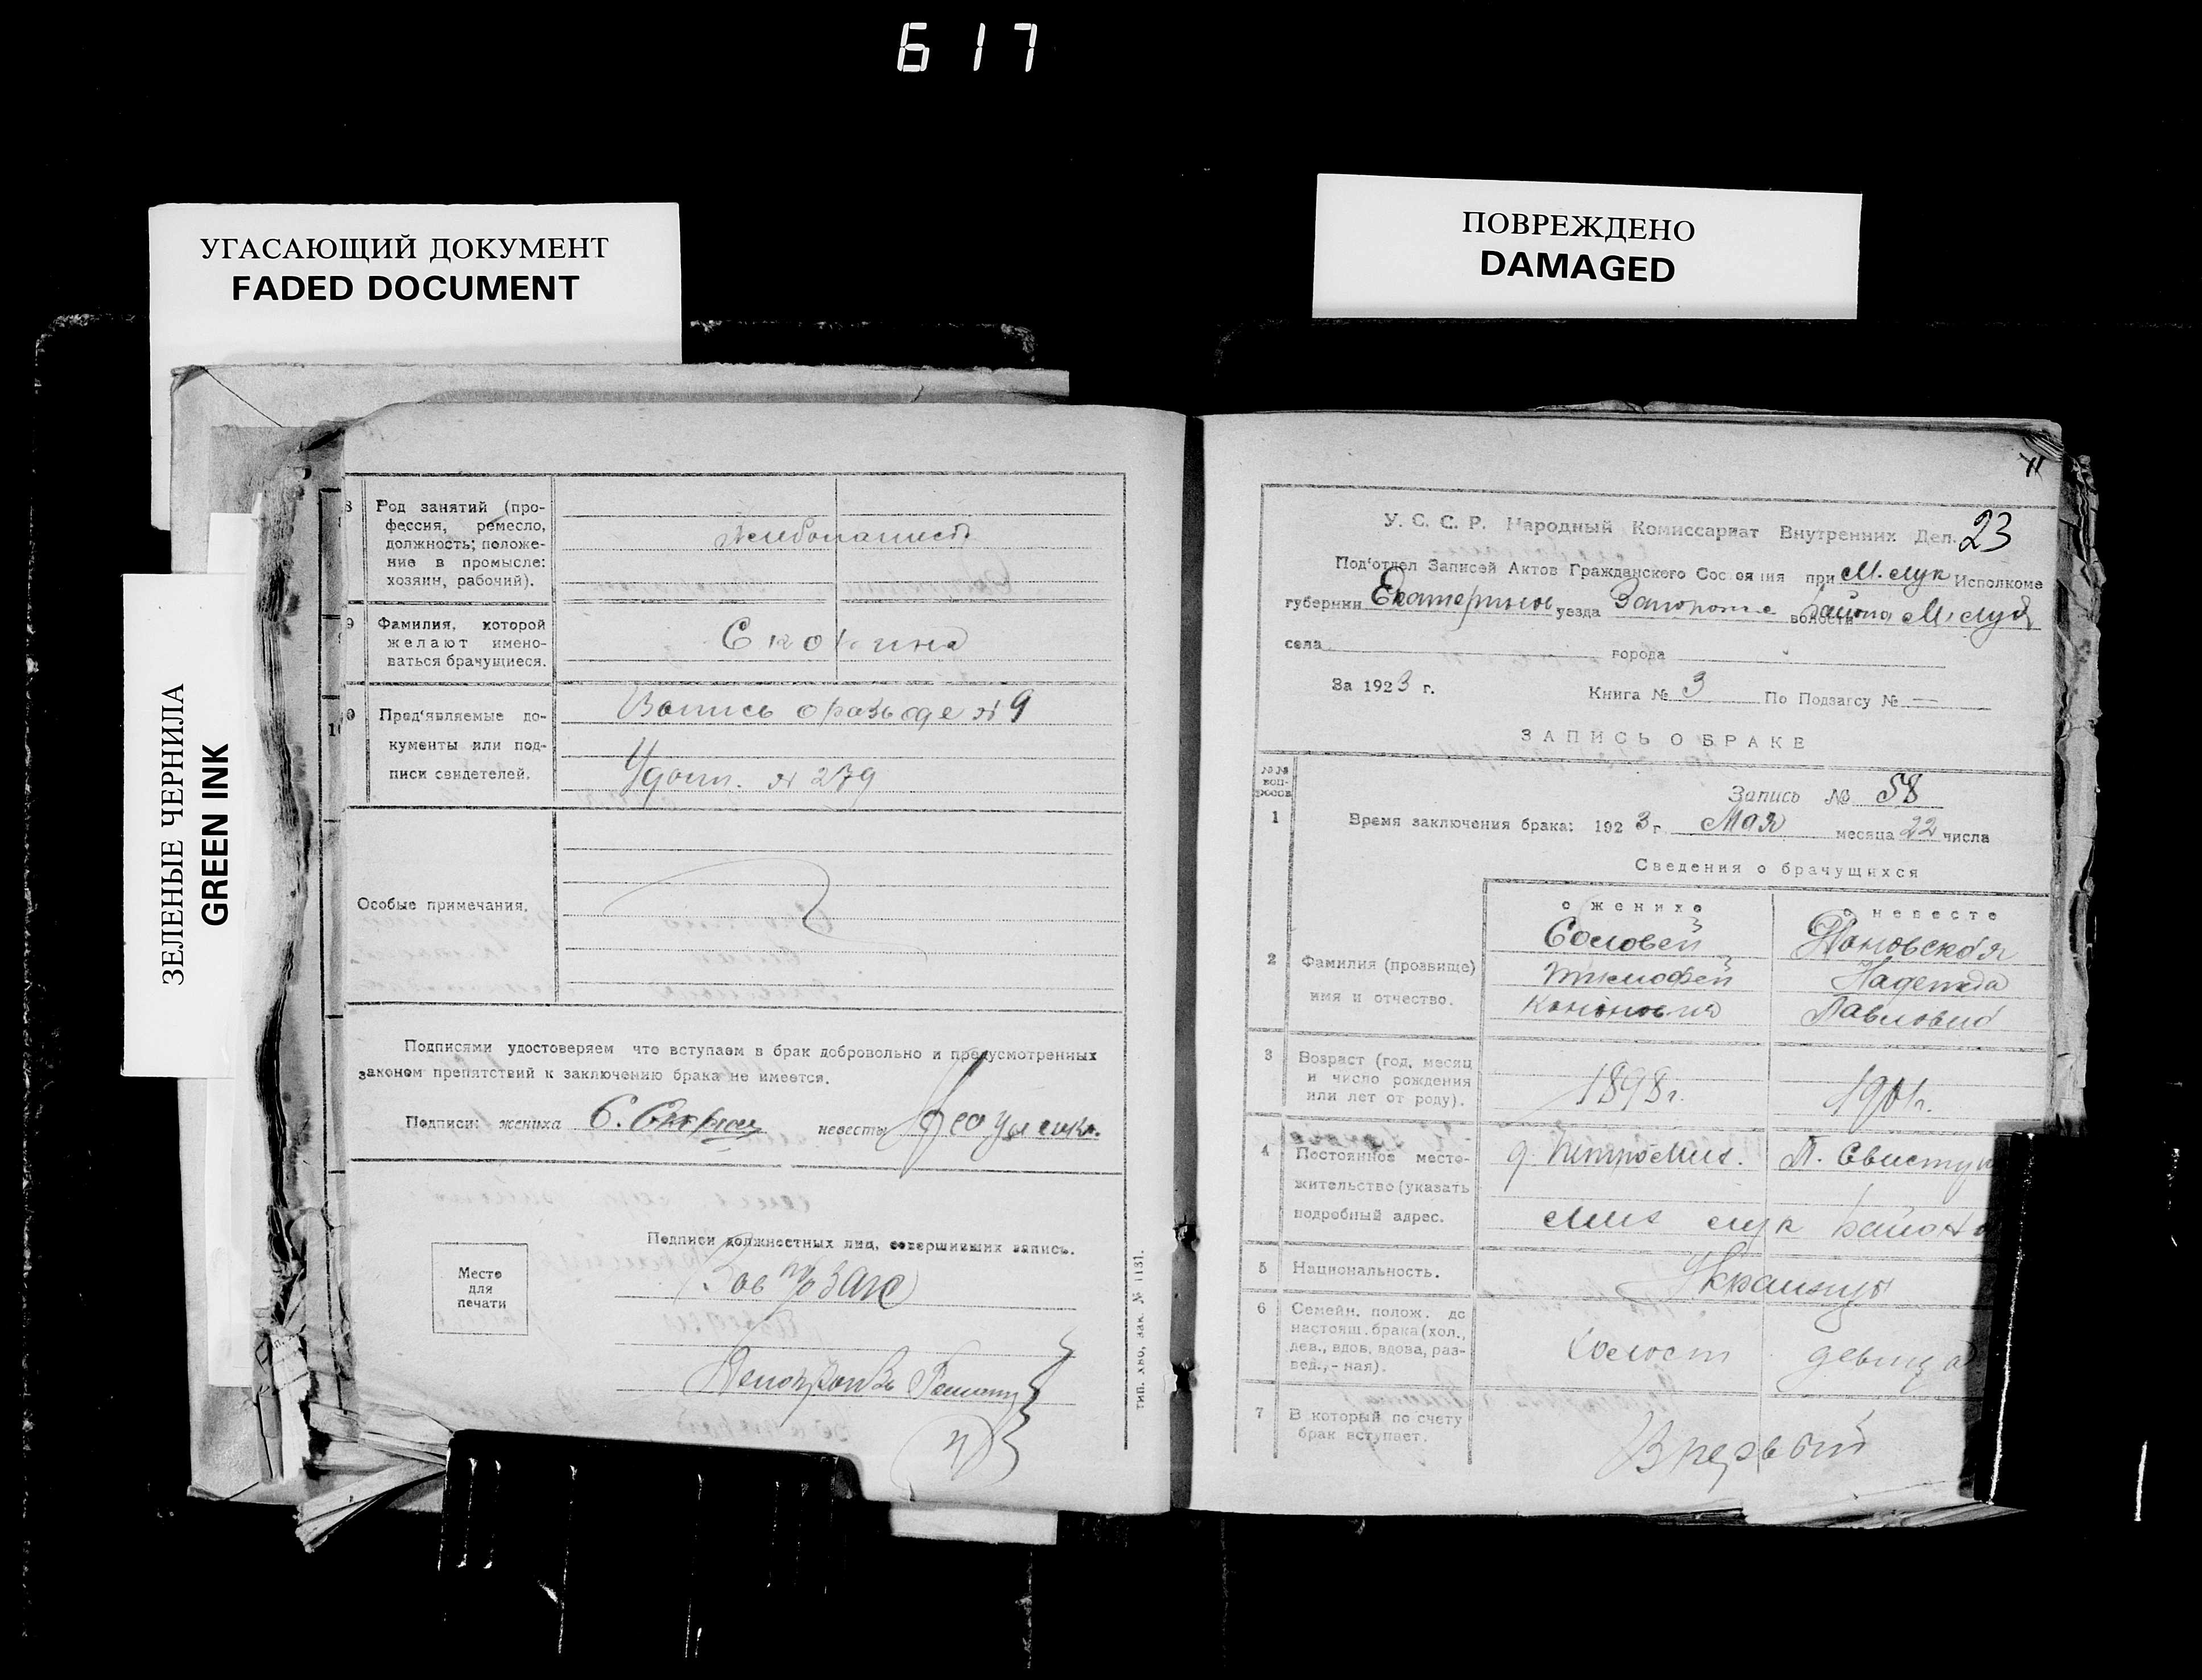 617
УГАСАЮЩИЙ ДОКУМЕНТ
FADED DOCUMENT
ПОВРЕЖДЕНО
DAMAGED
ЗЕЛЕНЫЕ ЧЕРНИЛА
GREEN INK
8 Род занятий (про-
фессия, ремесло,
должность; положе-
ние в промысле:
хозяин, рабочий).
9 Фамилия, которой
желают имено-
ваться брачущиеся.
10 Пред'являемые до-
кументы или под-
писи свидетелей.
Запись о разводе № 9
Удост. № 279
Особые примечания.
Подписями удостоверяем что вступаем в брак добровольно и предусмотренных
законом препятствий к заключению брака не имеется.
Подписи: жениха невесты
Подписи должностных лиц, совершивших запись.
Место
для
печати
Зав п/о Загс
тип. ХВО, зак. № 1131.
У. С. С. Р. Народный Комиссариат Внутренних Дел. 23
Под'отдел Записей Актов Гражданского Состояния при М. Лук Исполкоме
губернии Екатеринос уезда Запорож волости района М. Лук
села города
За 1923 г. Книга № 3 По Подзагсу № —
ЗАПИСЬ О БРАКЕ
№№ воп-
росов
Запись № 58
1 Время заключения брака: 1923 г. Мая месяца 22 числа
Сведения о брачущихся
о женихе о невесте
2 Фамилия (прозвище)
имя и отчество.
Соловей
Тимофей Надежда
Кононович Павловна
3 Возраст (год, месяц
и число рождения
или лет от роду).
1898 г. 1901 г.
4 Постоянное место-
жительство (указать
подробный адрес.
д. Петро Мих. П. Свисту
Мих Лук района
5 Национальность. Украинцы
6 Семейн. полож. до
настоящ. брака (хол.,
дев., вдов, вдова, раз-
вед., - ная).
Холост девица
7 В который по счету
брак вступает.
В первый